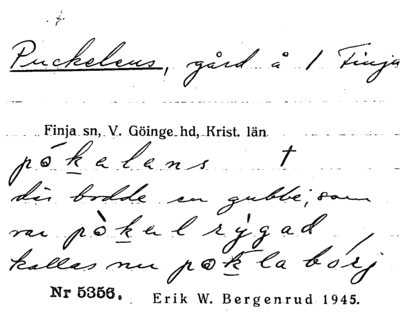 Puckelens, gård å 1 Finja
Finja sn, V. Göinge hd, Krist. län
pòkalans †
där bodde en gubbe, som
var pòkalrýgad
kallas nu poklabórj
Nr 5356. Erik W. Bergenrud 1945.